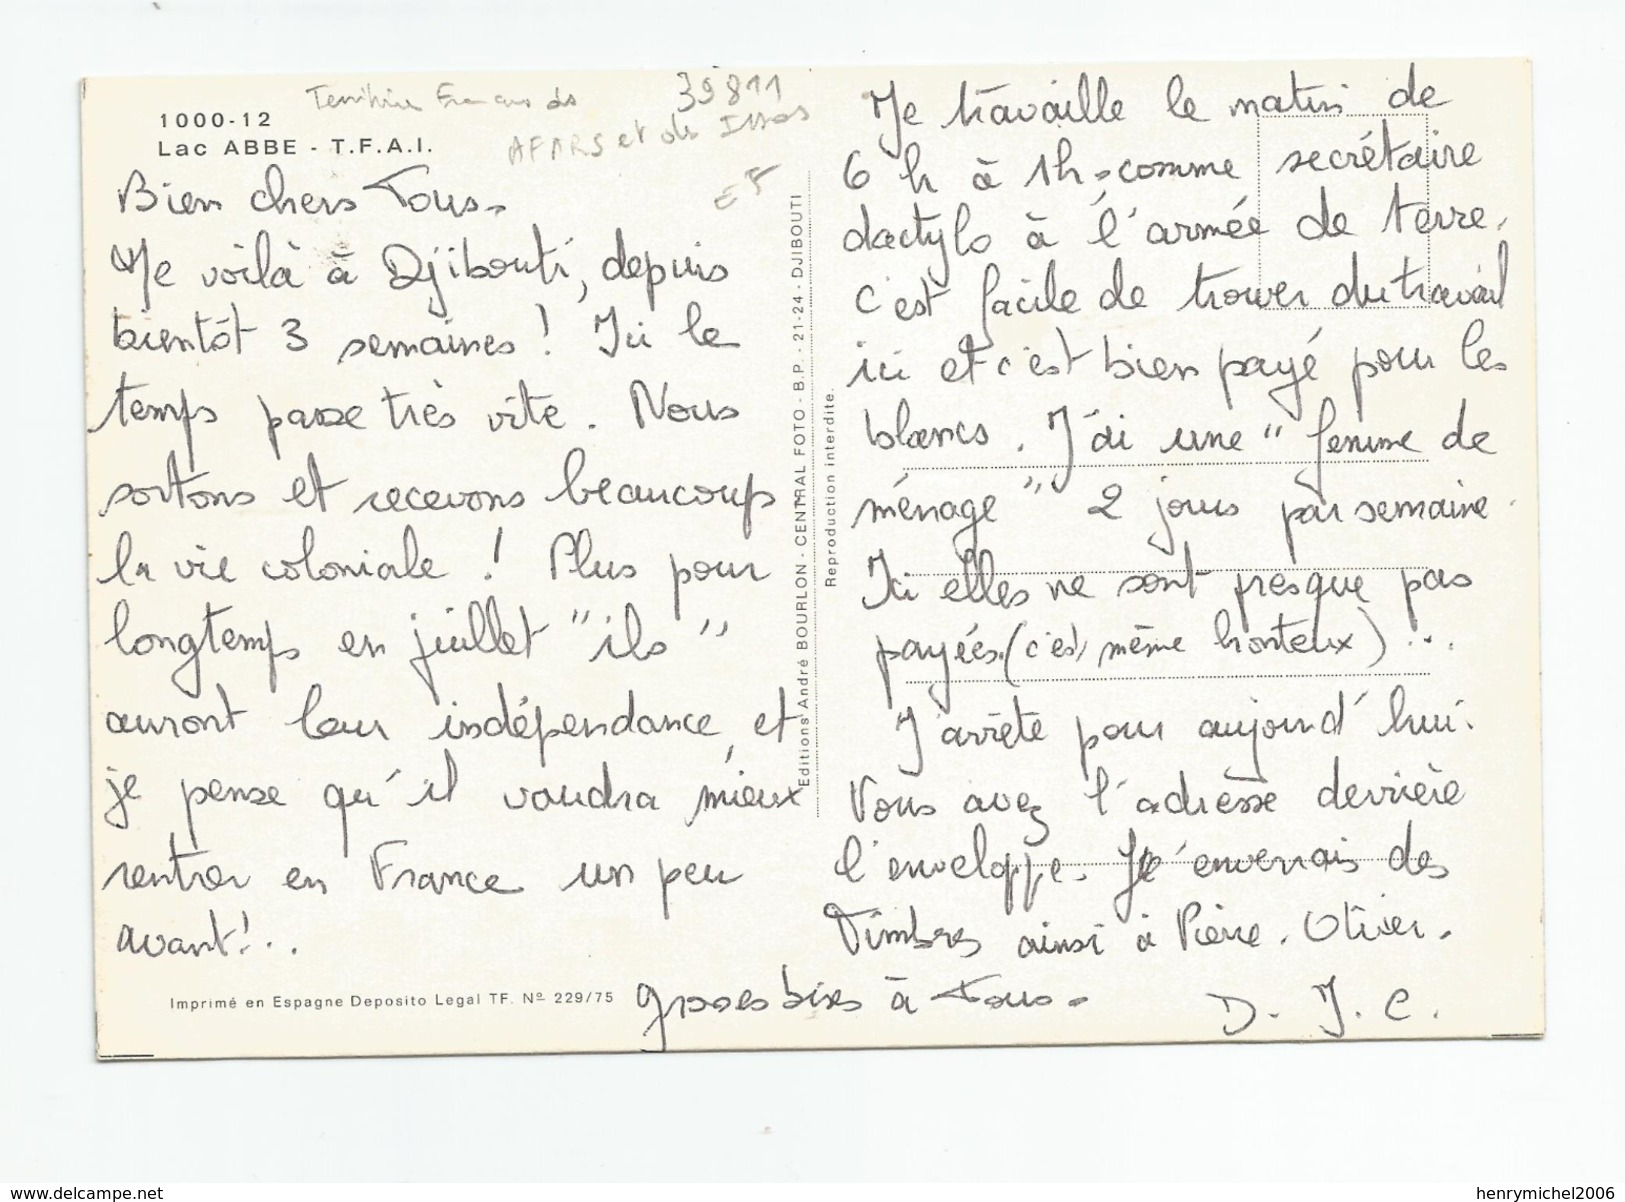 1000-12
Lac ABBE - T.F.A.I.
Territoire Français des
AFARS et des Issas
39811
Bien chers Tous.
Me voilà à Djibouti, depuis
bientôt 3 semaines ! Ici le
temps passe très vite. Nous
sortons et recevons beaucoup
la vie coloniale ! Plus pour
longtemps en juillet "ils"
auront leur indépendance, et
je pense qu'il voudra mieux
rentrer en France un peu
avant!..
Imprimé en Espagne Deposito Legal TF. Nº 229/75
Editions André BOURLON - CENTRAL FOTO - B.P. - 21-24 - DJIBOUTI
Reproduction interdite.
Je travaille le matin de
6 h à 1h. comme secrétaire
dactylo à l'armée de terre.
c'est facile de trouver du travail
ici et c'est bien payé pour les
blancs. J'ai une "femme de
ménage" 2 jours par semaine.
Ici elles ne sont presque pas
payées (c'est même honteux)...
J'arrête pour aujourd'hui.
Vous avez l'adresse derrière
l'enveloppe. J'enverrais des
Timbres ainsi à Pierre. Olivier.
grosses bises à Tous.
D. J. C.
www.delcampe.net
henrymichel2006